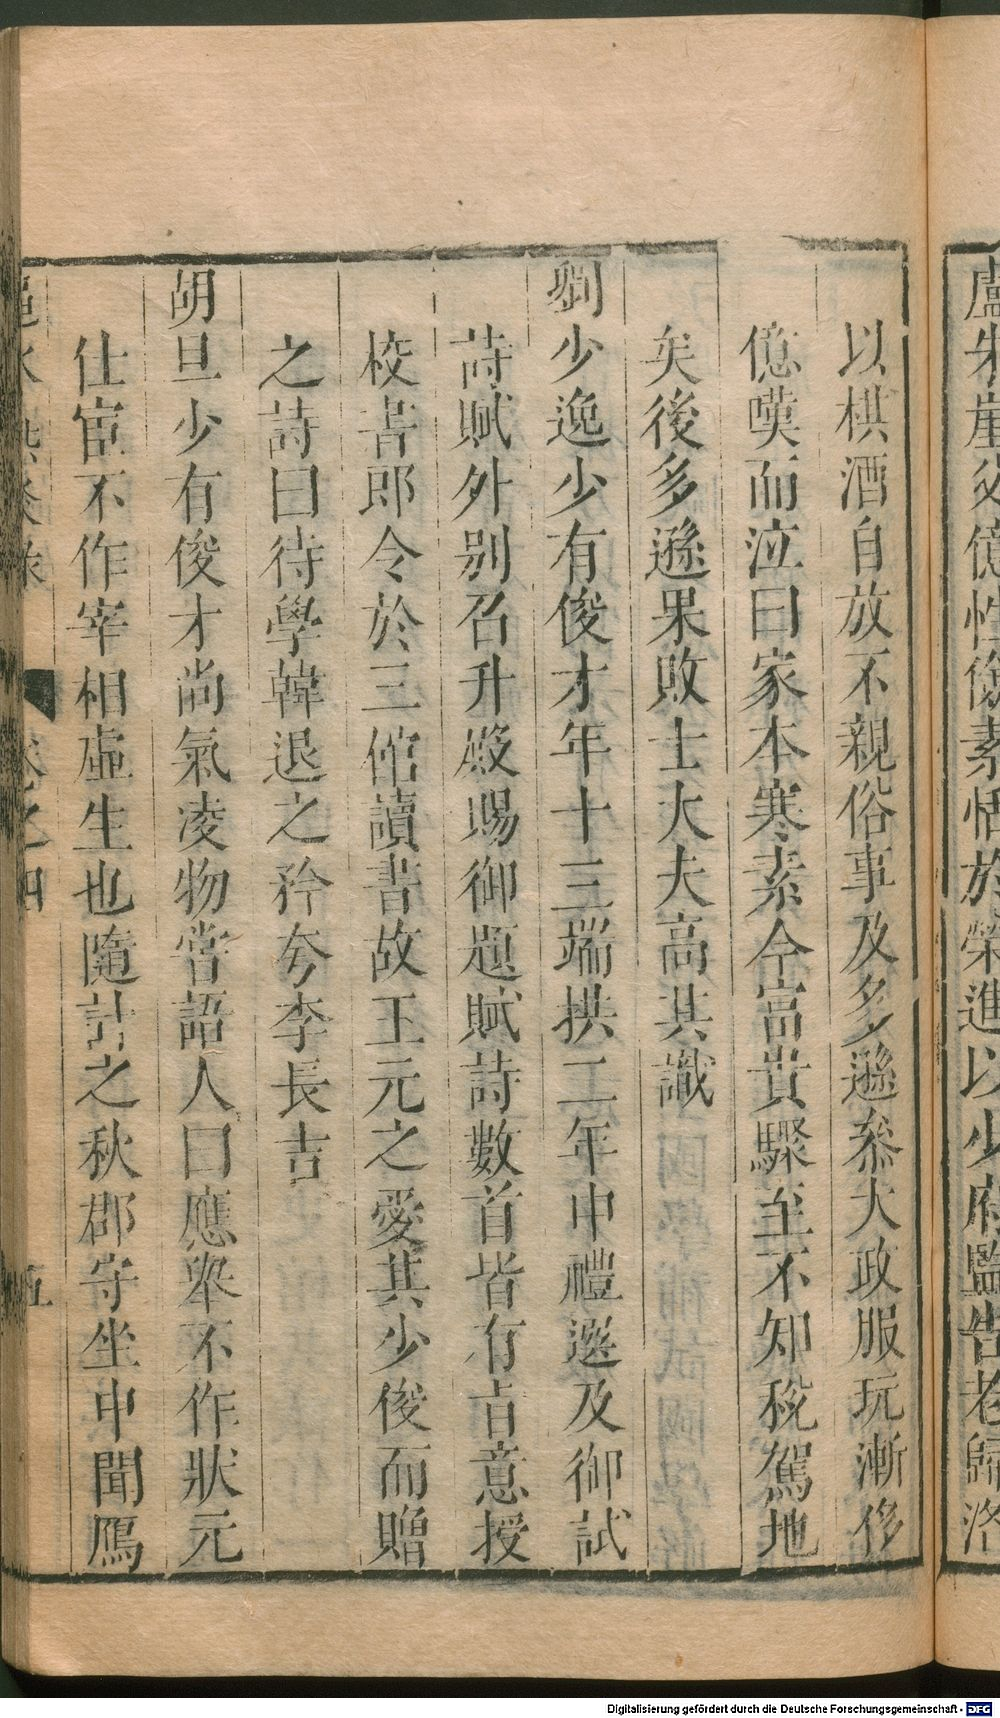 盧朱崖父億性儉素恬於榮進以少府監告老歸洛
以棋酒自放不親俗事及多遜叅大政服玩漸侈
億嘆而泣曰家本寒素今富貴驟至不知稅駕地
矣後多遜果敗士大夫高其識
劉少逸少有俊才年十三端拱二年中禮選及御試
詩賦外别召升殿賜御題賦詩數首皆有占意授
校書郎令於三館讀書故王元之愛其少俊而贈
之詩曰待學韓退之矜夸李長吉
胡旦少有俊才尚氣凌物嘗語人曰應舉不作狀元
仕宦不作宰相虛生也隨計之秋郡守坐中聞鴈
澠水燕談錄
卷之四
五
Digitalisierung gefördert durch die Deutsche Forschungsgemeinschaft - DFG